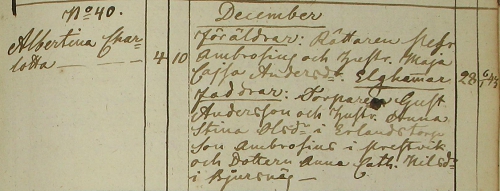 No 40.
December
Albertina Char-
lotta
4 10
Föräldrar: Rättaren Pehr
Ambrosius och hustr. Maja
Cajsa Andersdr. Elghamar 28
Faddrar: Torparen Gust
Andersson och hustr. Anna
Stina Olsdr i Erlandstorp
Son Ambrosius i
och Dottern Anna Cath. Nilsdr
i Bjursnäs